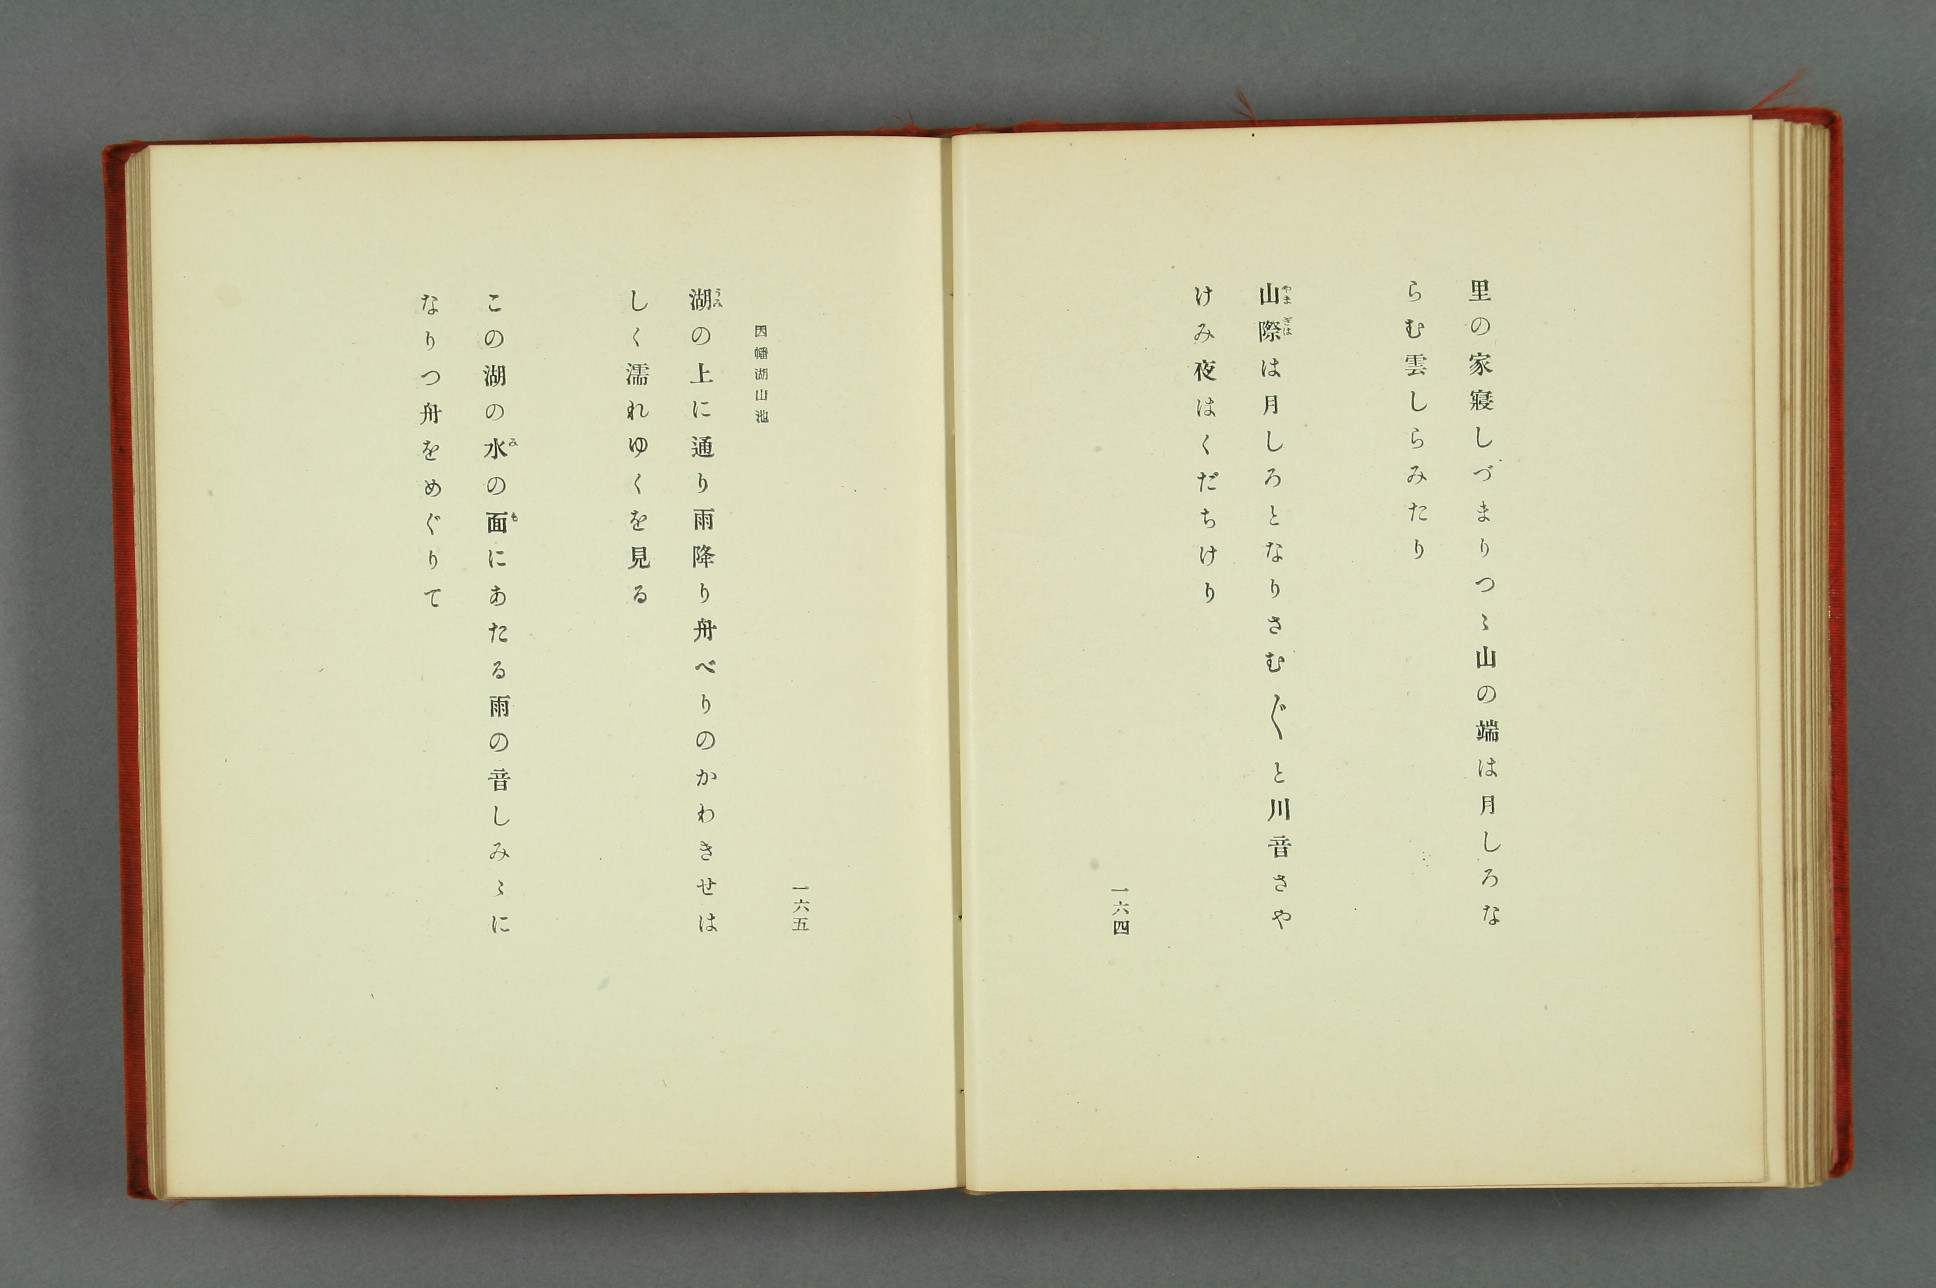 里の家寝しづまりつゝ山の端は月しろな
らむ雲しらみたり
山際は月しろとなりさむ〴〵と川音さや
けみ夜はくだちけり
一六四
一六五
因幡湖山池
湖の上に通り雨降り舟べりのかわきせは
しく濡れゆくを見る
この湖の水の面にあたる雨の音しみゝに
なりつ舟をめぐりて